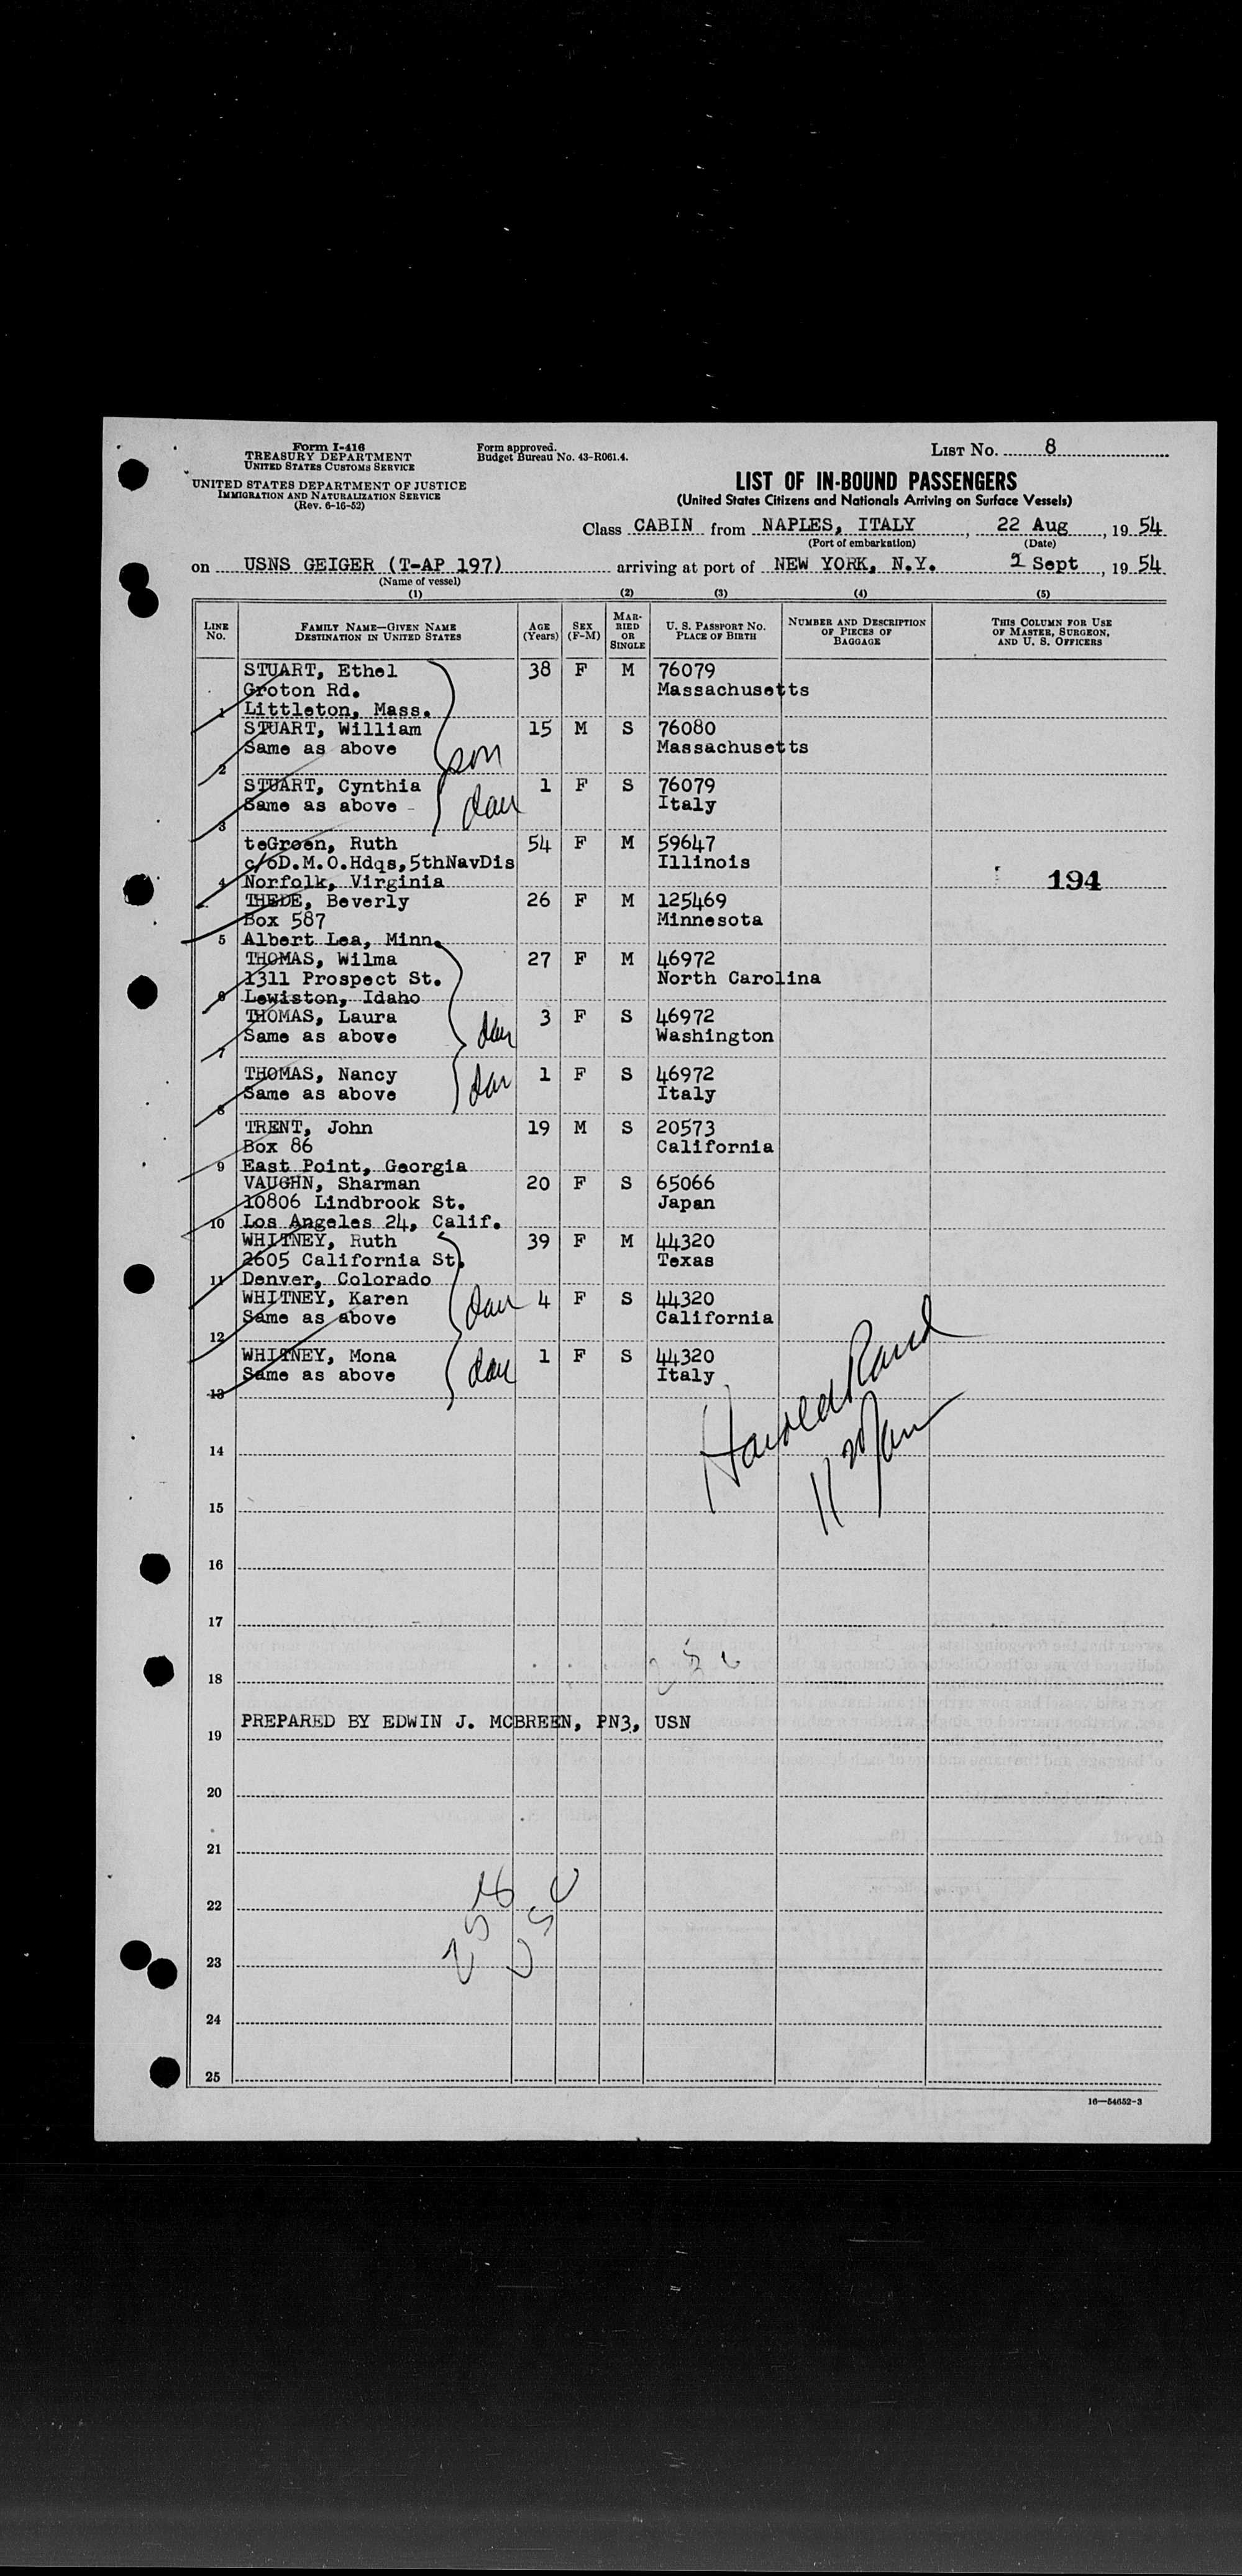 Form I-416
TREASURY DEPARTMENT
UNITED STATES CUSTOMS SERVICE
UNITED STATES DEPARTMENT OF JUSTICE
IMMIGRATION AND NATURALIZATION SERVICE
(Rev. 6-16-52)
Form approved.
Budget Bureau No. 43-R061.4.
LIST NO. 8
LIST OF IN-BOUND PASSENGERS
(United States Citizens and Nationals Arriving on Surface Vessels)
Class CABIN from NAPLES, ITALY, 22 Aug, 1954
(Port of embarkation) (Date)
on USNS GEIGER (T-AP 197) arriving at port of NEW YORK, N.Y. Sept, 1954
(Name of vessel)
(1) (2) (3) (4) (5)
LINE NO. FAMILY NAME—GIVEN NAME DESTINATION IN UNITED STATES AGE (Years) SEX (F-M) MARRIED OR SINGLE U. S. PASSPORT NO. PLACE OF BIRTH NUMBER AND DESCRIPTION OF PIECES OF BAGGAGE THIS COLUMN FOR USE OF MASTER, SURGEON, AND U. S. OFFICERS
STUART, Ethel 38 F M 76079
Groton Rd. Massachusetts
1 Littleton, Mass.
STUART, William 15 M S 76080
Same as above son Massachusetts
2
STUART, Cynthia 1 F S 76079
Same as above dau Italy
3
teGroen, Ruth 54 F M 59647
c/oD.M.O.Hdqs,5thNavDis Illinois
4 Norfolk, Virginia 194
THEDE, Beverly 26 F M 125469
Box 587 Minnesota
5 Albert Lea, Minn.
THOMAS, Wilma 27 F M 46972
1311 Prospect St. North Carolina
6 Lewiston, Idaho
THOMAS, Laura 3 F S 46972
Same as above dau Washington
7
THOMAS, Nancy 1 F S 46972
Same as above dau Italy
8
TRENT, John 19 M S 20573
Box 86 California
9 East Point, Georgia
VAUGHN, Sharman 20 F S 65066
10806 Lindbrook St. Japan
10 Los Angeles 24, Calif.
WHITNEY, Ruth 39 F M 44320
2605 California St. Texas
11 Denver, Colorado
WHITNEY, Karen dau 4 F S 44320
Same as above California
12
WHITNEY, Mona 1 F S 44320
Same as above dau Italy
13
Harold Rand
14
15
16
17
18
PREPARED BY EDWIN J. MCBREEN, PN3, USN
19
20
21
22
USC
23
24
25
16—54652-3